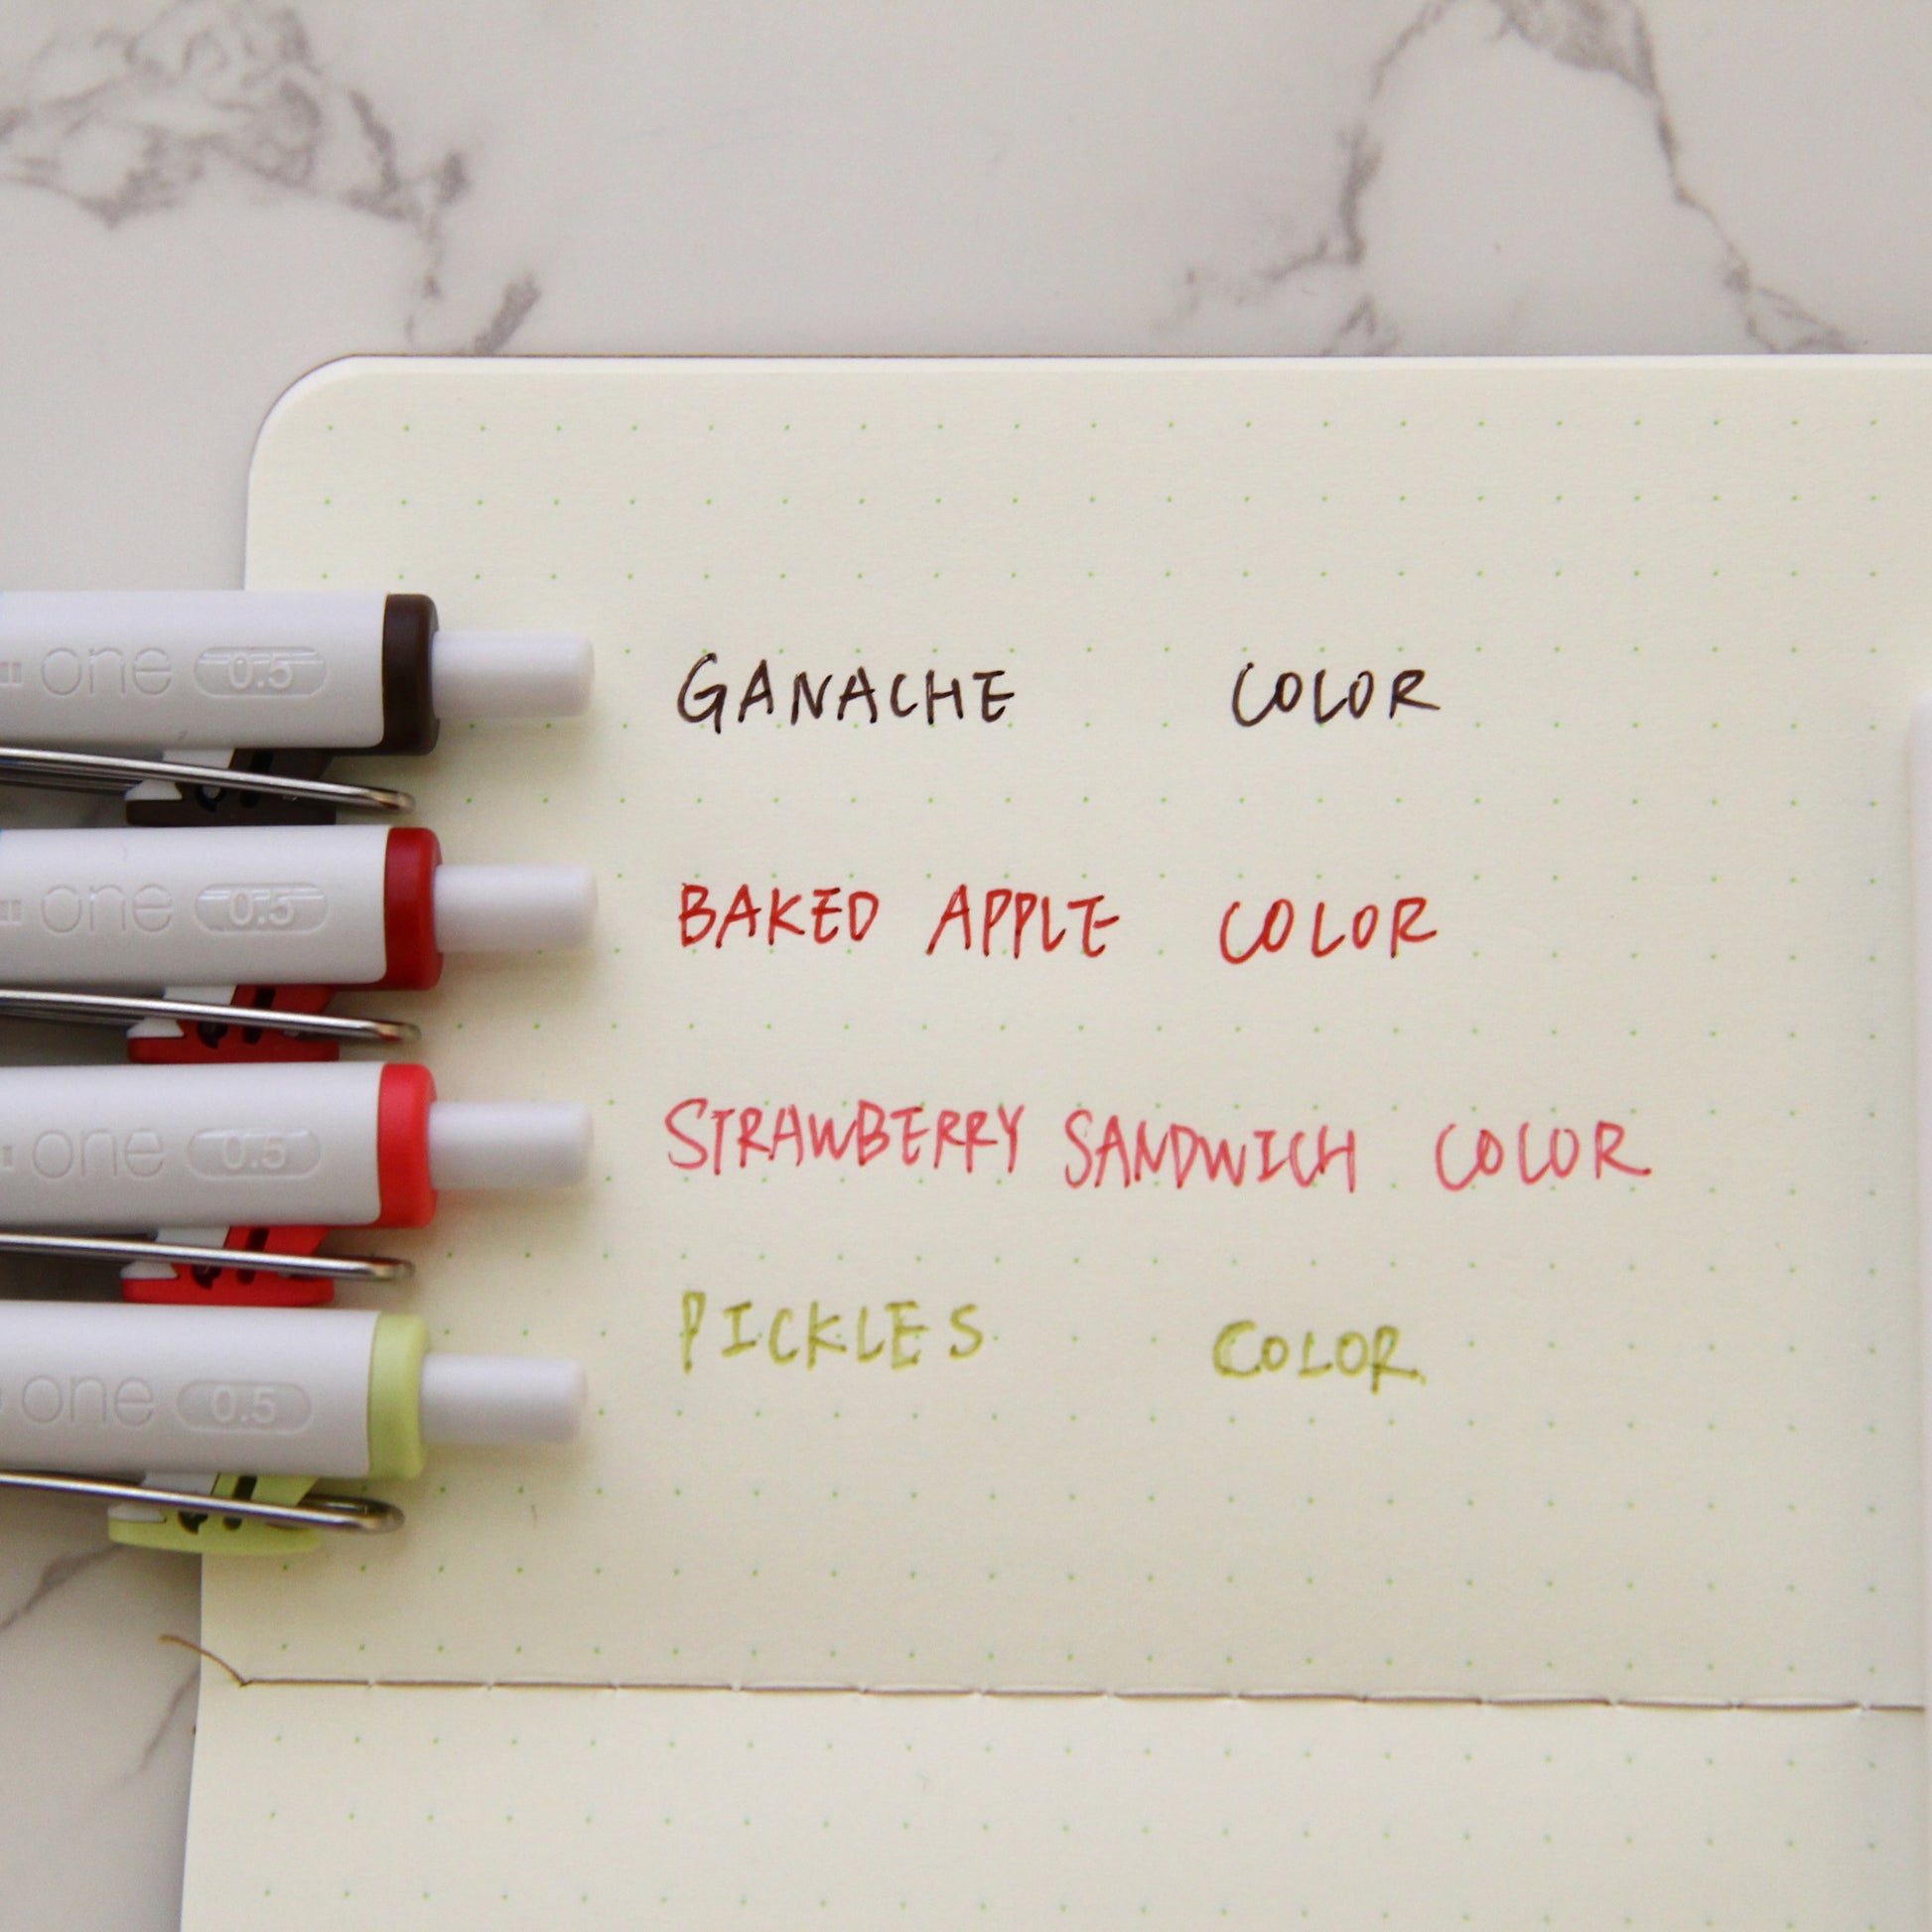 one 0.5
GANACHE COLOR
one 0.5
BAKED APPLE COLOR
one 0.5
STRAWBERRY SANDWICH COLOR
one 0.5
PICKLES COLOR